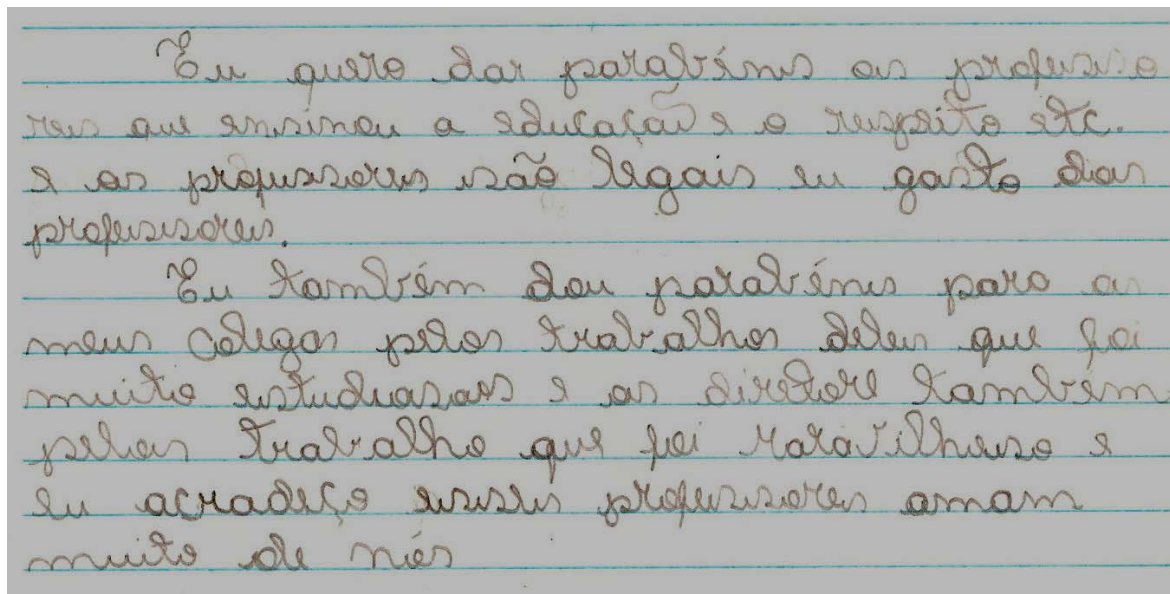 Eu quero dar parabéns os professo
res que ensinou a educação e o respeito etc.
e os professores são legais eu gosto dos
professores.
Eu também dou parabéns para os
meus colegas pelos trabalhos deles que foi
muito estudiosos e os diretore também
pelos trabalho que foi maravilhoso e
eu acradeço esses professores amam
muito de nós